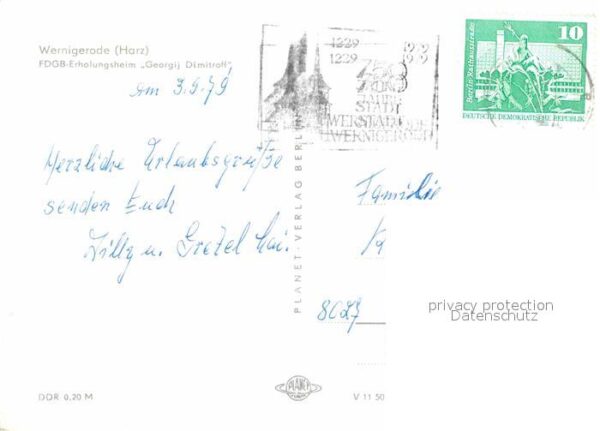 Wernigerode (Harz)
FDGB-Erholungsheim „Georgij Dimitroff"
Am 3.9.79
Herzliche Urlaubsgrüße
senden Euch
Willy u. Gretel
Familie
8027
1229 1979
1229 1979
750
JAHRE
STADT
WERNIGERODE
10
Berlin-Rathausstrasse
DEUTSCHE DEMOKRATISCHE REPUBLIK
PLANET-VERLAG BERLIN
privacy protection
Datenschutz
DDR 0,20 M
PLANET
V 11 50